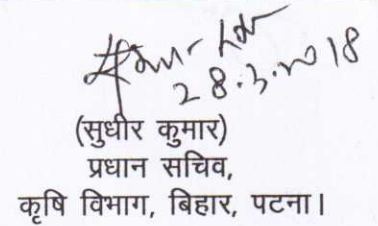 28.3.2018
(सुधीर कुमार)
प्रधान सचिव,
कृषि विभाग, बिहार, पटना।